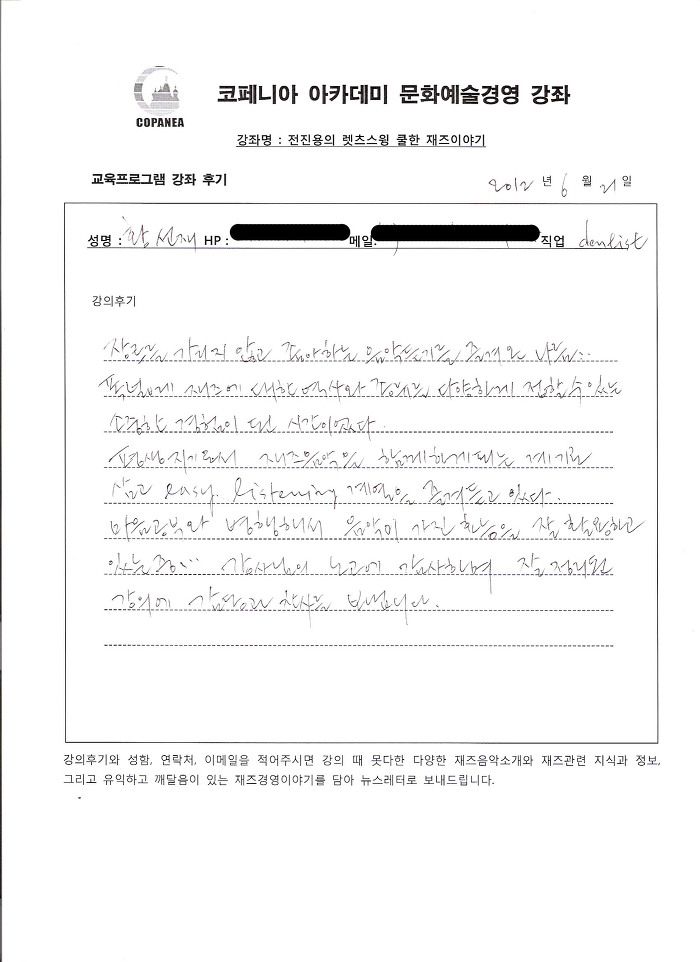 COPANEA
코페니아 아카데미 문화예술경영 강좌
강좌명 : 전진용의 렛츠스윙 쿨한 재즈이야기
교육프로그램 강좌 후기
2012 년 6 월 21 일
성명 : 황선재 HP : 메일: 직업 dentist
강의후기
장르를 가리지 않고 좋아하는 음악듣기를 즐겨온 나는..
폭넓게 재즈에 대한 역사와 장르를 다양하게 접할 수 있는
소중한 경험이 된 시간이었다.
평생지기로서 재즈음악을 함께하게되는 계기로
삼고 easy listening 계열을 즐겨듣고 있다.
마음공부와 병행해서 음악이 가진 효능을 잘 활용하고
있는중.. 강사님의 노고에 감사하며 잘 정리된
강의에 감탄과 찬사를 보냅니다.
강의후기와 성함, 연락처, 이메일을 적어주시면 강의 때 못다한 다양한 재즈음악소개와 재즈관련 지식과 정보,
그리고 유익하고 깨달음이 있는 재즈경영이야기를 담아 뉴스레터로 보내드립니다.